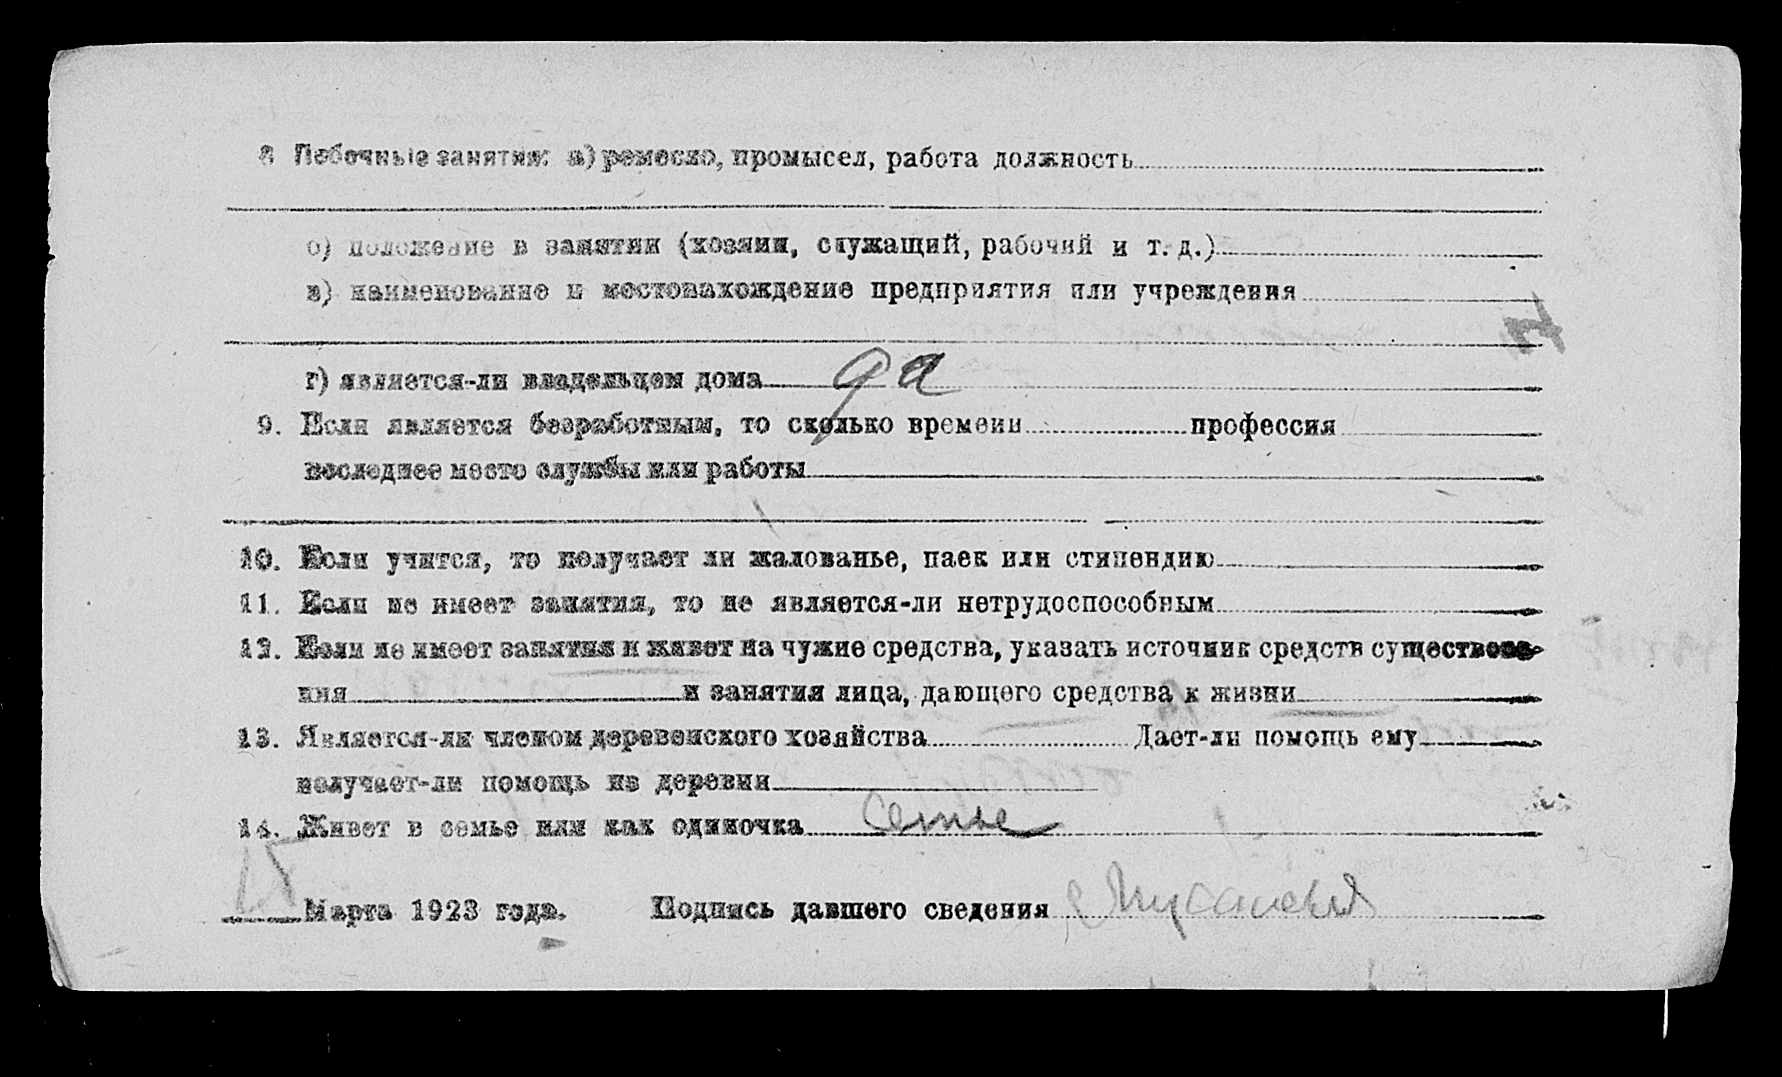 8 Побочные занятия: а) ремесло, промысел, работа должность
б) положение в занятии (хозяин, служащий, рабочий и т. д.)
в) наименование и местонахождение предприятия или учреждения
г) является-ли владельцем дома да
9. Если является безработным, то сколько времени профессия
последнее место службы или работы
10. Если учится, то получает ли жалованье, паек или стипендию
11. Если не имеет занятия, то не является-ли нетрудоспособным
12. Если не имеет занятия и живет на чужие средства, указать источник средств существова-
ния и занятия лица, дающего средства к жизни
13. Является-ли членом деревенского хозяйства Дает-ли помощь ему
получает-ли помощь из деревни
14. Живет в семье или как одиночка семье
15 Марта 1923 года. Подпись давшего сведения